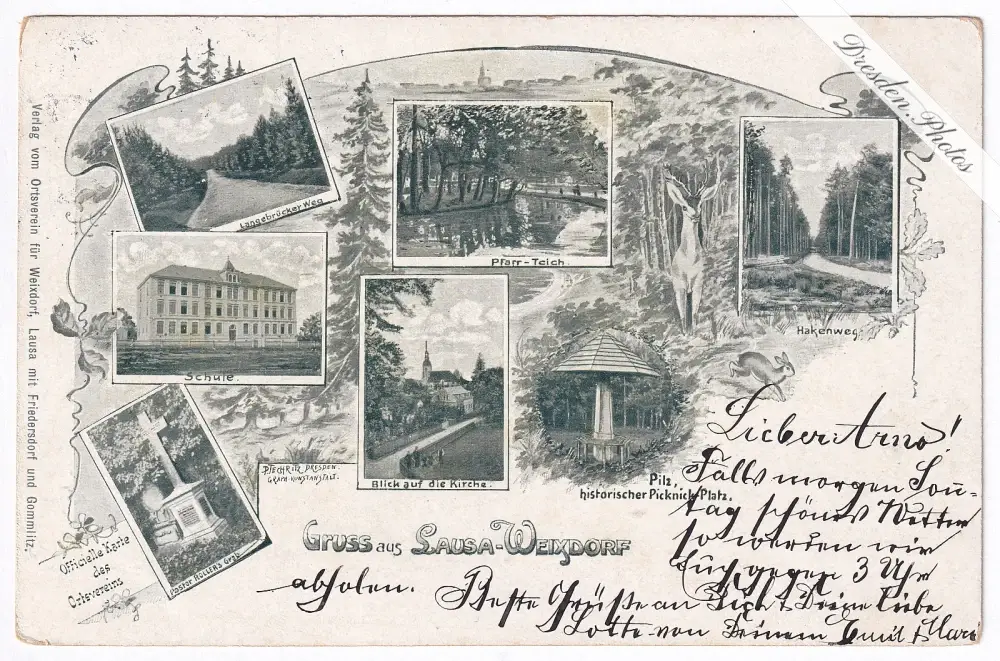 Dresden.Photos
Verlag vom Ortsverein für Weixdorf, Lausa mit Friedersdorf und Gommlitz.
Langebrücker Weg
Pfarr-Teich.
Hakenweg.
Schule.
Blick auf die Kirche.
Pilz,
historischer Picknick-Platz.
P. Techritz, Dresden.
Graph. Kunstanstalt.
Pastor ROLLERS Grab
Officielle Karte
des
Ortsvereins
Gruss aus Lausa-Weixdorf
Lieber Arno!
Falls morgen Sonn-
tag schönes Wetter
so werden wir
Euch gegen 3 Uhr
abholen. Beste Grüße an Dich + Deine liebe
Lotte von Deinem Emil +